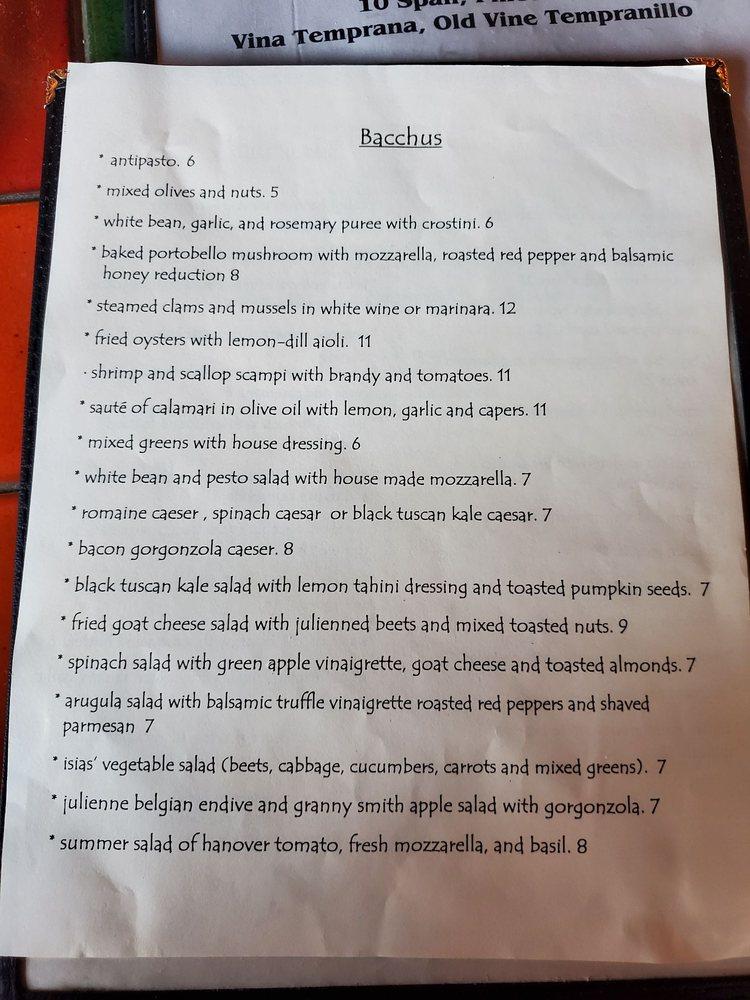 10 Span,
Vina Temprana, Old Vine Tempranillo
Bacchus
* antipasto. 6
* mixed olives and nuts. 5
* white bean, garlic, and rosemary puree with crostini. 6
* baked portobello mushroom with mozzarella, roasted red pepper and balsamic
honey reduction 8
* steamed clams and mussels in white wine or marinara. 12
* fried oysters with lemon-dill aioli. 11
· shrimp and scallop scampi with brandy and tomatoes. 11
* sauté of calamari in olive oil with lemon, garlic and capers. 11
* mixed greens with house dressing. 6
* white bean and pesto salad with house made mozzarella. 7
* romaine caeser , spinach caesar or black tuscan kale caesar. 7
* bacon gorgonzola caeser. 8
* black tuscan kale salad with lemon tahini dressing and toasted pumpkin seeds. 7
* fried goat cheese salad with julienned beets and mixed toasted nuts. 9
* spinach salad with green apple vinaigrette, goat cheese and toasted almonds. 7
* arugula salad with balsamic truffle vinaigrette roasted red peppers and shaved
parmesan 7
* isias' vegetable salad (beets, cabbage, cucumbers, carrots and mixed greens). 7
* julienne belgian endive and granny smith apple salad with gorgonzola. 7
* summer salad of hanover tomato, fresh mozzarella, and basil. 8